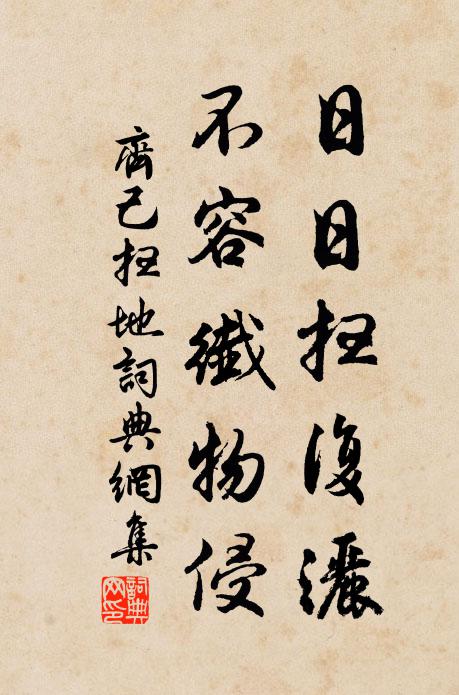 日日扫復灑
不容纖物侵
齊己扫地詞典網集
詞典
网印